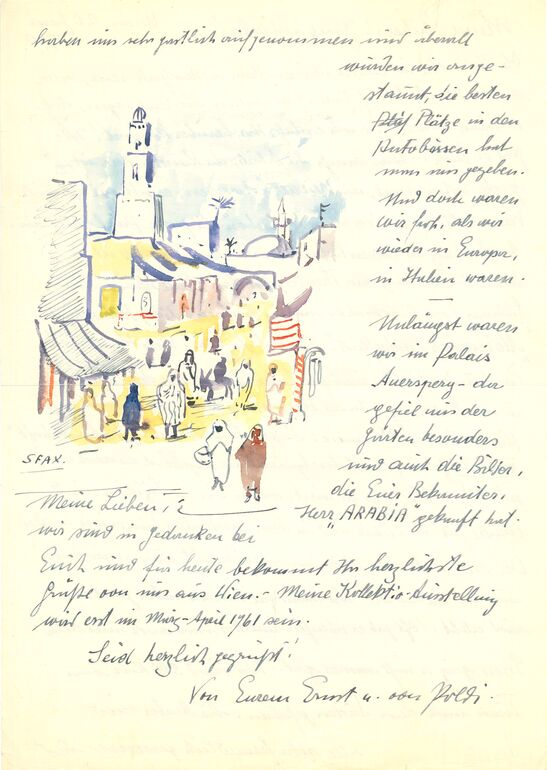 haben uns sehr gastlich aufgenommen und überall
wurden wir ange-
staunt, die besten
Plätze in den
Autobüssen hat
man uns gegeben.
Und doch waren
wir froh, als wir
wieder in Europa,
in Italien waren.
—
Unlängst waren
wir im Palais
Auersperg - da
gefiel uns der
Garten besonders
und auch die Bilder,
die Euer Bekannter,
Herr „ARABIA" gekauft hat.
SFAX.
Meine Lieben,
wir sind in Gedanken bei
Euch und für heute bekommt Ihr herzlichste
Grüße von uns aus Wien. - Meine Kollektiv-Ausstellung
wird erst im März-April 1961 sein.
Seid herzlich gegrüßt!
Von Eurem Ernst u. von Poldi.